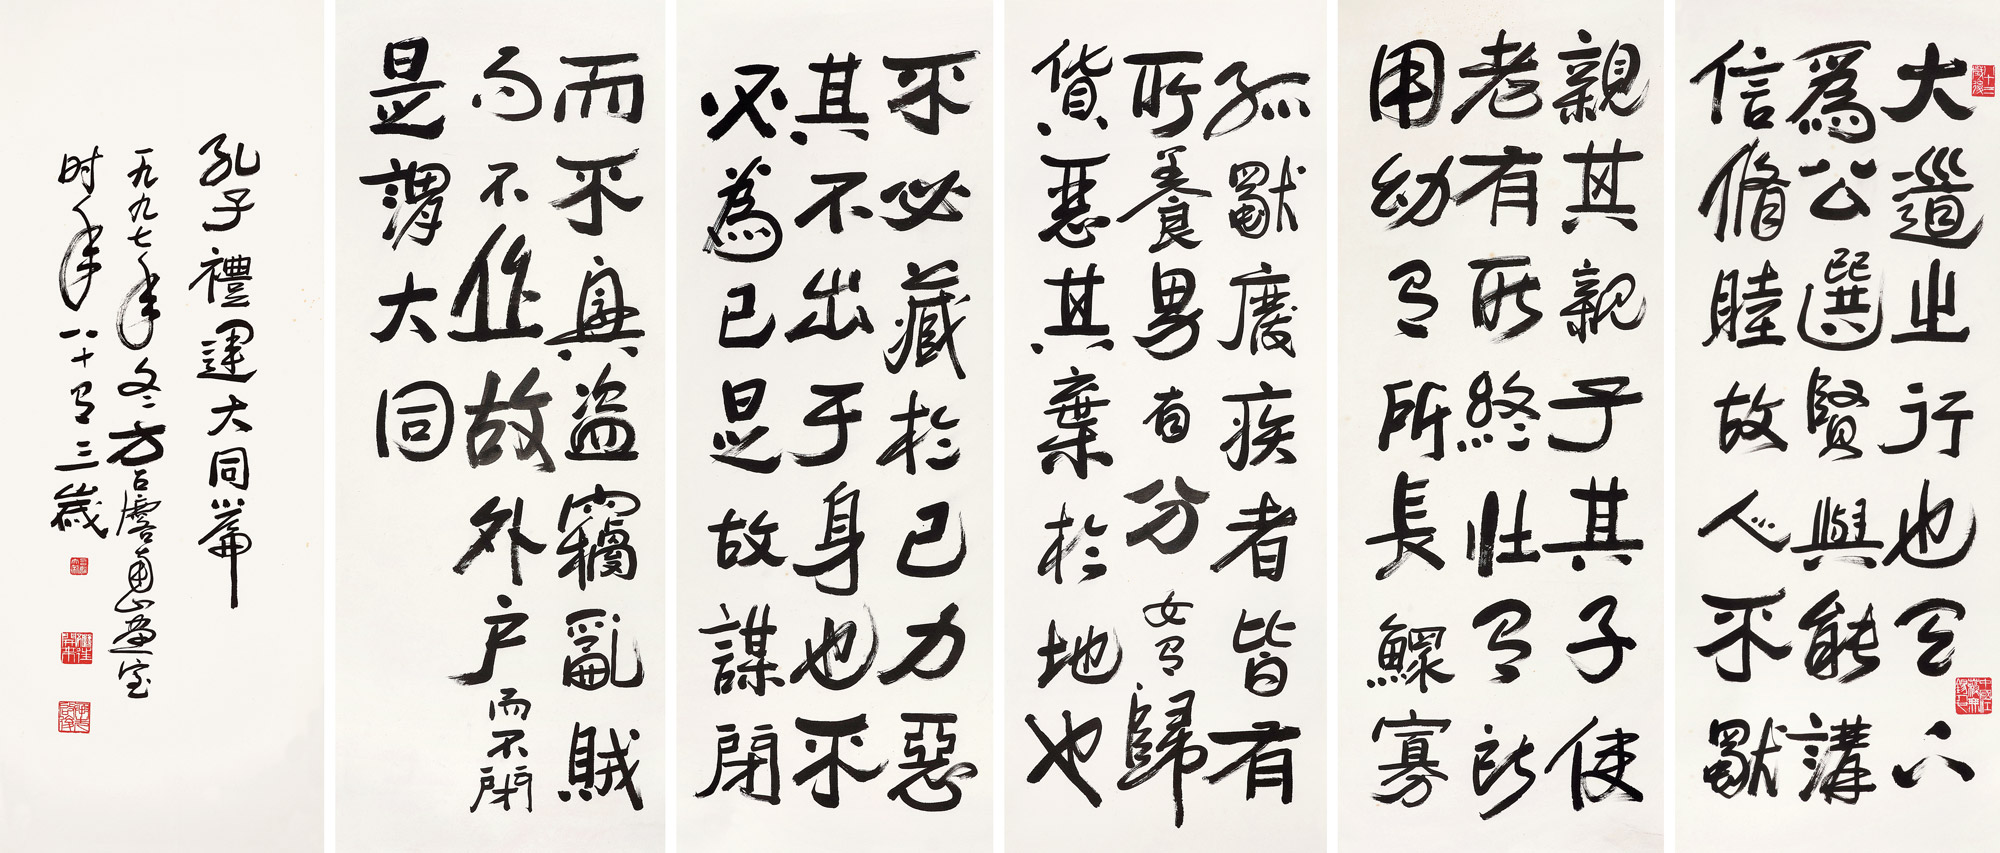 大道之行也天下
爲公選賢與能講
信脩睦故人不獨
親其親子其子使
老有所終壯有所
用幼有所長鰥寡
孤獨廢疾者皆有
所養男有分女有歸
貨惡其棄於地也
不必藏於己力惡
其不出于身也不
必為己是故謀閉
而不興盜竊亂賊
而不作故外戶而不閉
是謂大同
孔子禮運大同篇
一九九七年冬方召麐畫室
时年八十有三歲